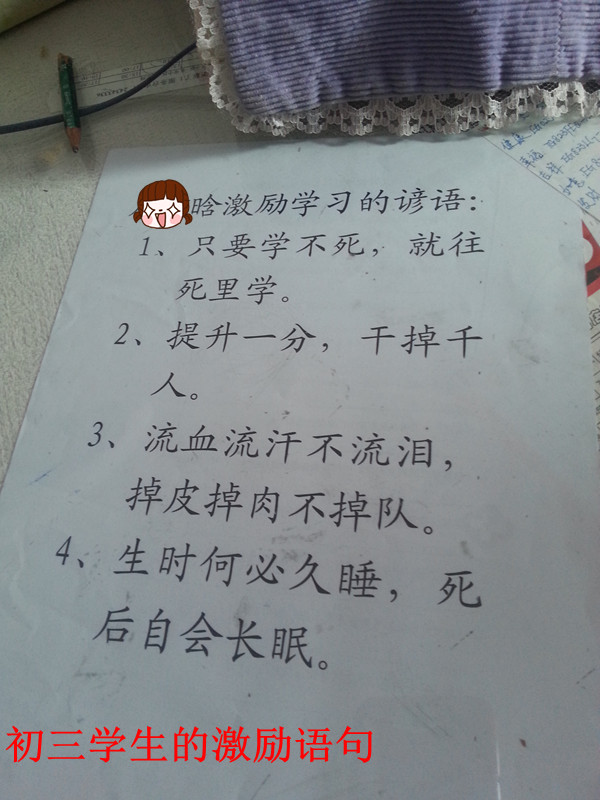 晗激励学习的谚语:
1、只要学不死，就往
死里学。
2、提升一分，干掉千
人。
3、流血流汗不流泪，
掉皮掉肉不掉队。
4、生时何必久睡，死
后自会长眠。
初三学生的激励语句